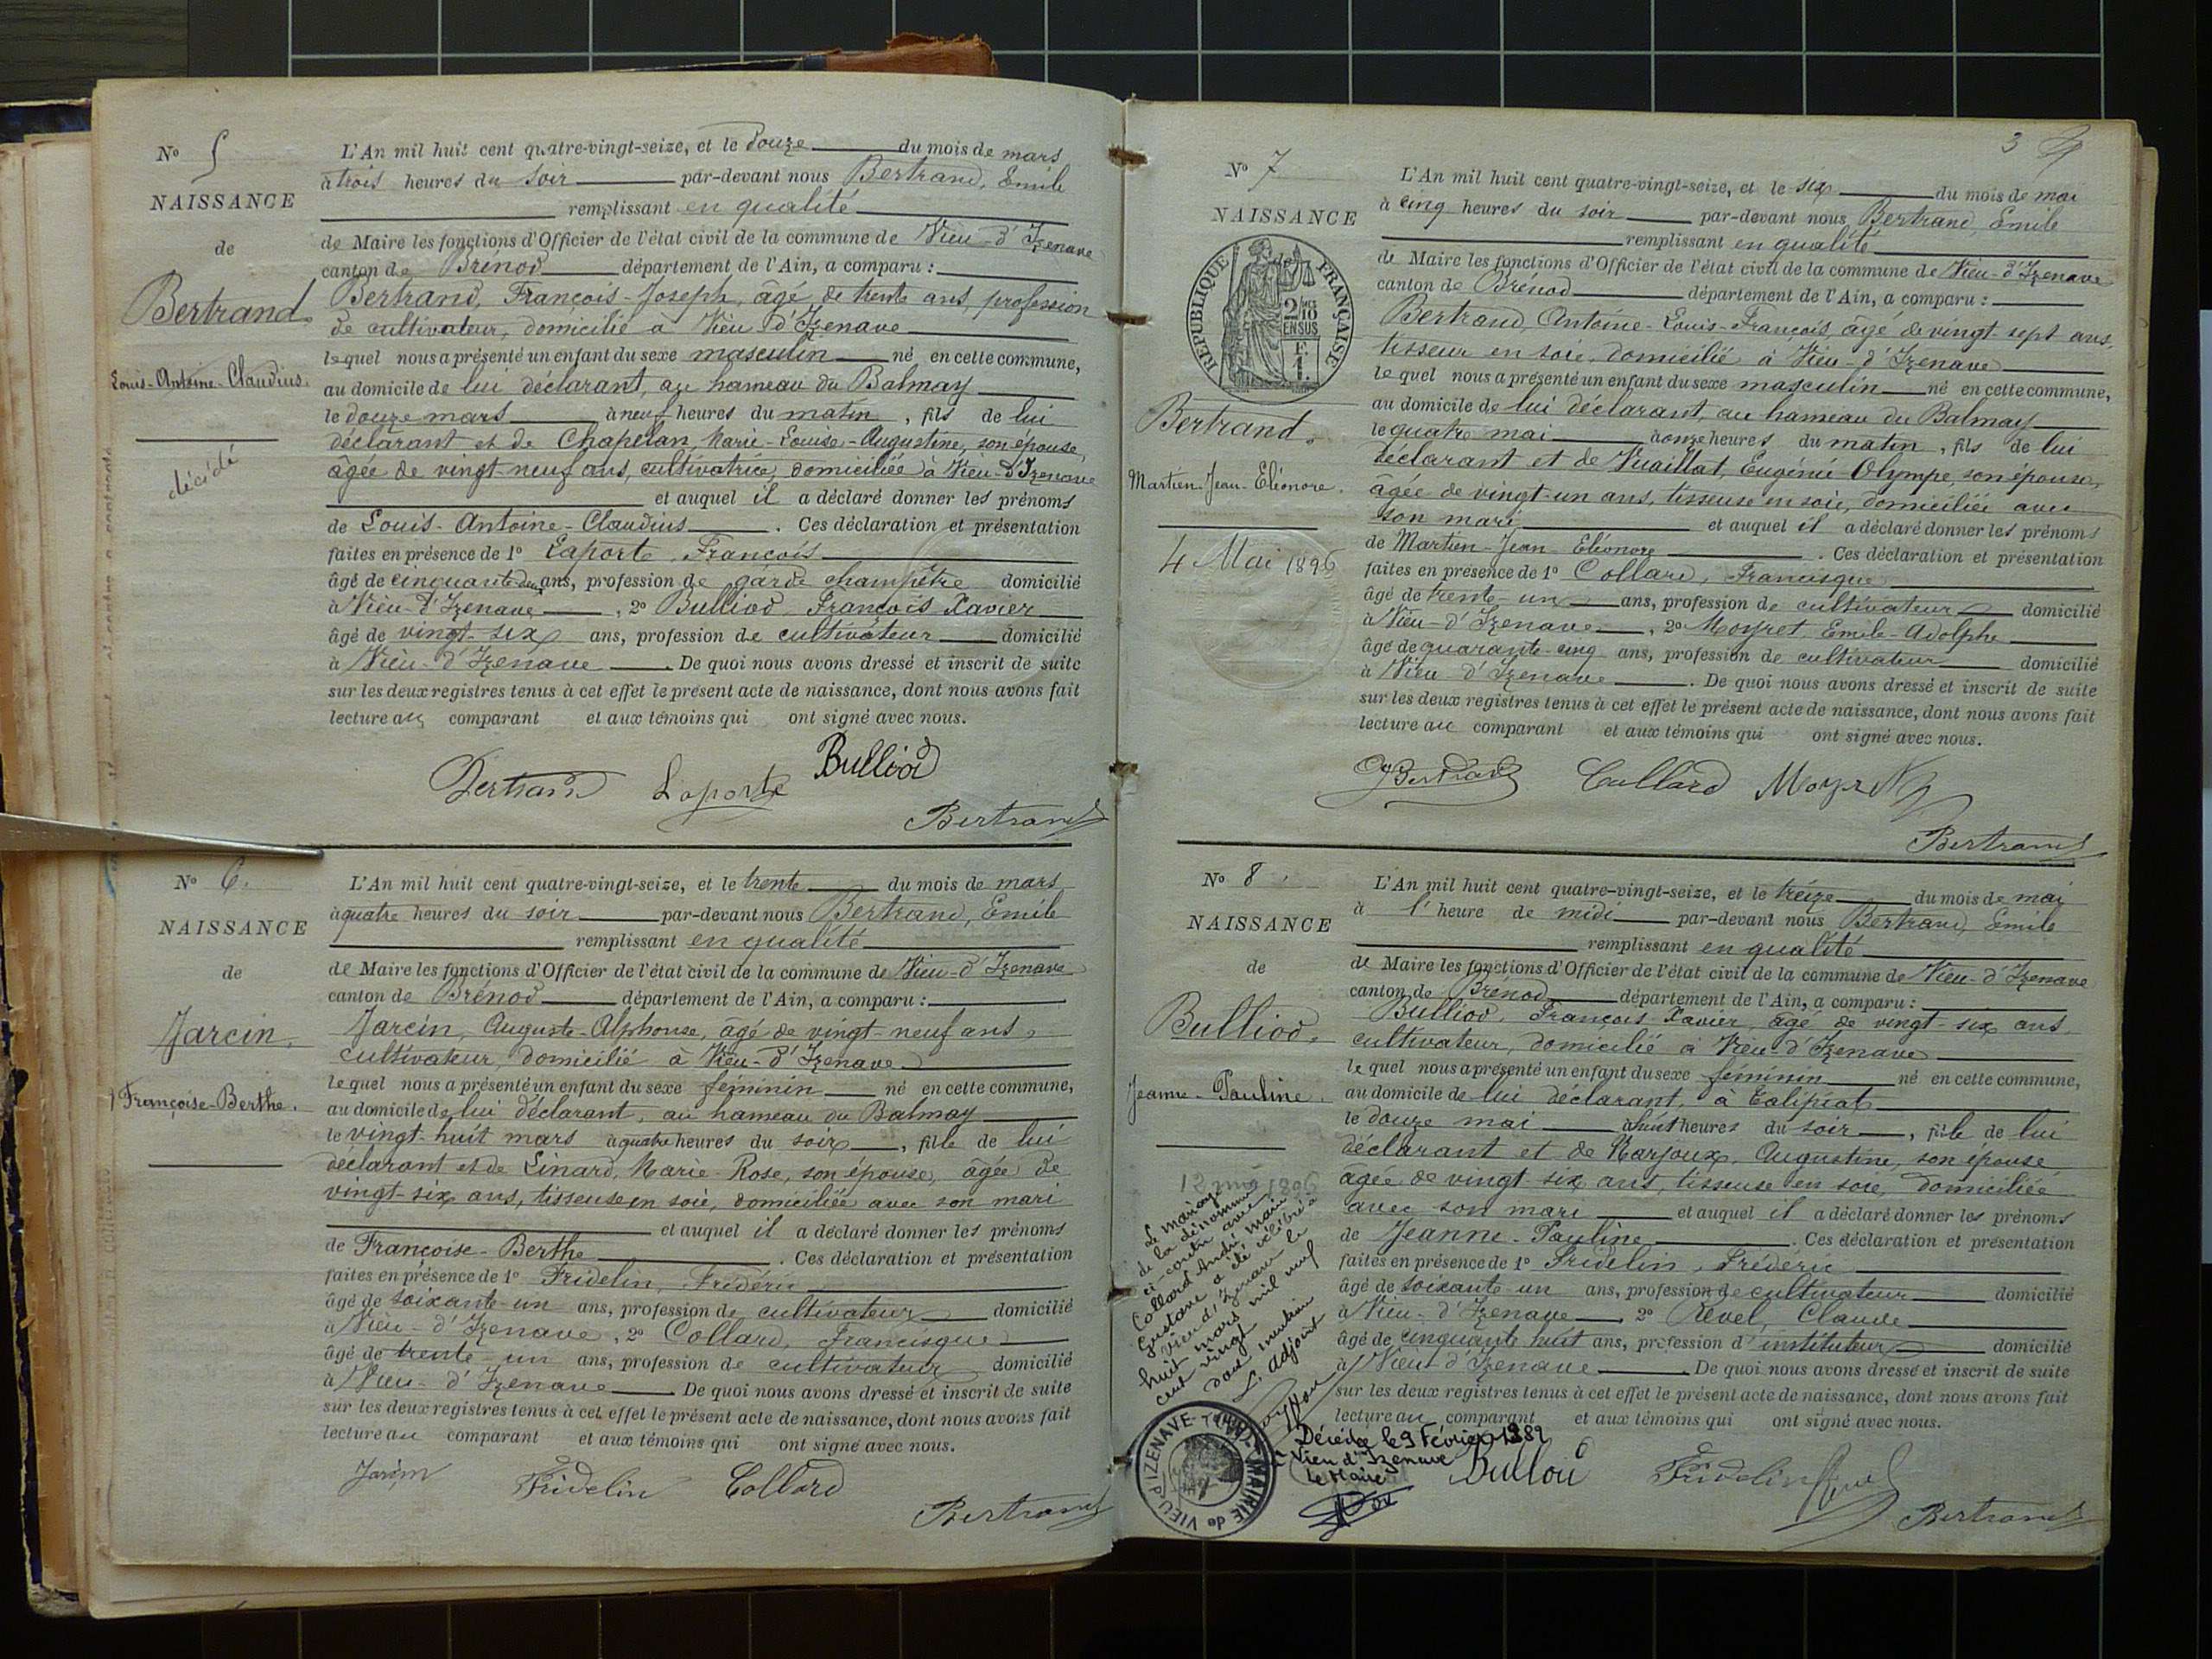 N° 5
NAISSANCE
de
Bertrand
Louis-Antoine-Claudius
décédé
L'An mil huit cent quatre-vingt-seize, et le douze du mois de mars
à trois heures du soir par-devant nous Bertrand, Emile
remplissant en qualité
de Maire les fonctions d'Officier de l'état civil de la commune de Vieu-d'Izenave
canton de Brénod département de l'Ain, a comparu :
Bertrand, François-Joseph, âgé de trente ans, profession
de cultivateur, domicilié à Vieu-d'Izenave
lequel nous a présenté un enfant du sexe masculin né en cette commune,
au domicile de lui déclarant, au hameau du Balmay
le douze mars à neuf heures du matin, fils de lui
déclarant et de Chapelan, Marie-Louise-Augustine, son épouse,
âgée de vingt-neuf ans, cultivatrice, domiciliée à Vieu-d'Izenave
et auquel il a déclaré donner les prénoms
de Louis-Antoine-Claudius. Ces déclaration et présentation
faites en présence de 1° Laporte, François
âgé de cinquante deux ans, profession de garde champêtre domicilié
à Vieu-d'Izenave, 2° Bulliod, François Xavier
âgé de vingt-six ans, profession de cultivateur domicilié
à Vieu-d'Izenave. De quoi nous avons dressé et inscrit de suite
sur les deux registres tenus à cet effet le présent acte de naissance, dont nous avons fait
lecture au comparant et aux témoins qui ont signé avec nous.
Bertrand Laporte Bulliod
Bertrand
N° 6.
NAISSANCE
de
Jarcin,
Françoise-Berthe.
L'An mil huit cent quatre-vingt-seize, et le trente du mois de mars
à quatre heures du soir par-devant nous Bertrand, Emile
remplissant en qualité
de Maire les fonctions d'Officier de l'état civil de la commune de Vieu-d'Izenave
canton de Brénod département de l'Ain, a comparu :
Jarcin, Auguste-Alphonse, âgé de vingt-neuf ans,
cultivateur, domicilié à Vieu-d'Izenave
lequel nous a présenté un enfant du sexe féminin né en cette commune,
au domicile de lui déclarant, au hameau du Balmay
le vingt-huit mars à quatre heures du soir, fille de lui
déclarant et de Linard, Marie-Rose, son épouse, âgée de
vingt-six ans, tisseuse en soie, domiciliée avec son mari
et auquel il a déclaré donner les prénoms
de Françoise-Berthe. Ces déclaration et présentation
faites en présence de 1° Fridelin, Frédéric
âgé de soixante-un ans, profession de cultivateur domicilié
à Vieu-d'Izenave, 2° Collard, Francisque
âgé de trente-un ans, profession de cultivateur domicilié
à Vieu-d'Izenave. De quoi nous avons dressé et inscrit de suite
sur les deux registres tenus à cet effet le présent acte de naissance, dont nous avons fait
lecture au comparant et aux témoins qui ont signé avec nous.
Jarcin Fridelin Collard
Bertrand
3
N° 7
NAISSANCE
de
RÉPUBLIQUE FRANÇAISE
2/10 EN SUS
F. 1.
Bertrand.
Martien-Jean-Eléonore.
4 Mai 1896
L'An mil huit cent quatre-vingt-seize, et le six du mois de mai
à cinq heures du soir par-devant nous Bertrand, Emile
remplissant en qualité
de Maire les fonctions d'Officier de l'état civil de la commune de Vieu-d'Izenave
canton de Brénod département de l'Ain, a comparu :
Bertrand, Antoine-Louis-François, âgé de vingt-sept ans,
tisseur en soie, domicilié à Vieu-d'Izenave
lequel nous a présenté un enfant du sexe masculin né en cette commune,
au domicile de lui déclarant, au hameau du Balmay
le quatre mai à onze heures du matin, fils de lui
déclarant et de Vuaillat, Eugénie Olympe, son épouse,
âgée de vingt-un ans, tisseuse en soie, domiciliée avec
son mari et auquel il a déclaré donner les prénoms
de Martien-Jean-Eléonore. Ces déclaration et présentation
faites en présence de 1° Collard, Francisque
âgé de trente-un ans, profession de cultivateur domicilié
à Vieu-d'Izenave, 2° Moyret, Emile-Adolphe
âgé de quarante-cinq ans, profession de cultivateur domicilié
à Vieu-d'Izenave. De quoi nous avons dressé et inscrit de suite
sur les deux registres tenus à cet effet le présent acte de naissance, dont nous avons fait
lecture au comparant et aux témoins qui ont signé avec nous.
Bertrand Collard Moyret
Bertrand
N° 8
NAISSANCE
de
Bulliod,
Jeanne-Pauline.
12 mai 1896
Le mariage
de la dénommée
ci-contre avec
Collard André Marie
Gustave a été célébré à
Vieu d'Izenave le
huit mars mil neuf
cent vingt
dont mention
L'adjoint
MAIRIE de VIEU-D'IZENAVE
Décédée le 9 Février 1982
Vieu d'Izenave
Le Maire
L'An mil huit cent quatre-vingt-seize, et le treize du mois de mai
à l'heure de midi par-devant nous Bertrand, Emile
remplissant en qualité
de Maire les fonctions d'Officier de l'état civil de la commune de Vieu-d'Izenave
canton de Brénod département de l'Ain, a comparu :
Bulliod, François-Xavier, âgé de vingt-six ans,
cultivateur, domicilié à Vieu-d'Izenave
lequel nous a présenté un enfant du sexe féminin né en cette commune,
au domicile de lui déclarant, à Talipiat
le douze mai à huit heures du soir, fille de lui
déclarant et de Marjoux, Augustine, son épouse
âgée de vingt-six ans, tisseuse en soie, domiciliée
avec son mari et auquel il a déclaré donner les prénoms
de Jeanne-Pauline. Ces déclaration et présentation
faites en présence de 1° Fridelin, Frédéric
âgé de soixante un ans, profession de cultivateur domicilié
à Vieu-d'Izenave, 2° Revel, Claude
âgé de cinquante huit ans, profession d'instituteur domicilié
à Vieu-d'Izenave. De quoi nous avons dressé et inscrit de suite
sur les deux registres tenus à cet effet le présent acte de naissance, dont nous avons fait
lecture au comparant et aux témoins qui ont signé avec nous.
Bulliod Fridelin Revel
Bertrand